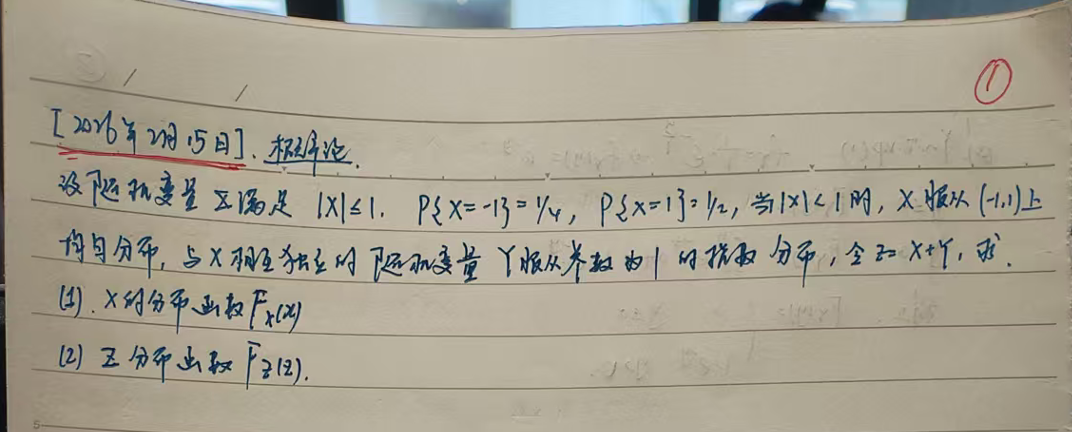 ①
[2026年2月15日]. 概率论.
设随机变量 X 满足 |X|≤1. P{X=-1}=1/4, P{X=1}=1/2, 当|X|<1时, X服从(-1,1)上
均匀分布, 与X相互独立的随机变量Y服从参数为1的指数分布, 令Z=X+Y, 求.
(1). X的分布函数F_X(x)
(2) Z分布函数F_Z(z).
5